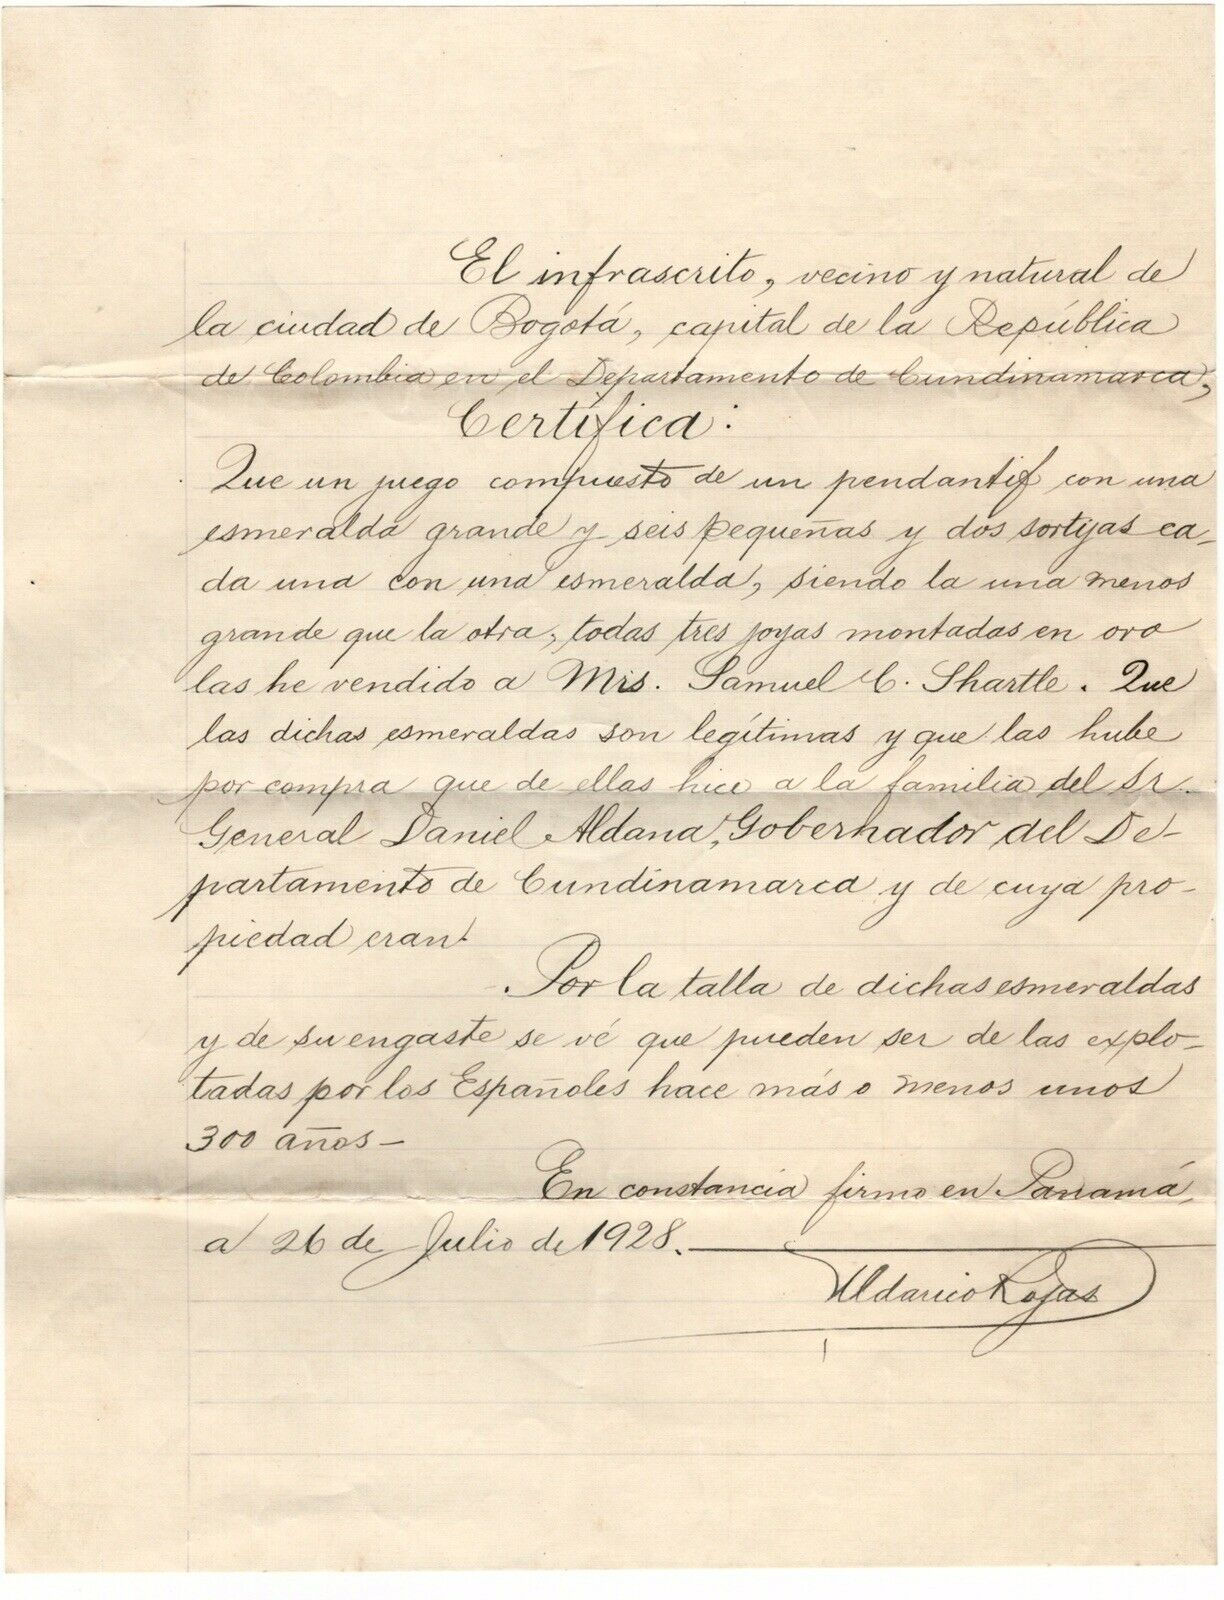 El infrascrito, vecino y natural de
la ciudad de Bogotá, capital de la República
de Colombia en el Departamento de Cundinamarca,
Certifica:
Que un juego compuesto de un pendantif con una
esmeralda grande y seis pequeñas y dos sortijas ca-
da una con una esmeralda, siendo la una menos
grande que la otra, todas tres joyas montadas en oro
las he vendido a Mrs. Samuel C. Shartle. Que
las dichas esmeraldas son legítimas y que las hube
por compra que de ellas hice a la familia del Sr.
General Daniel Aldana, Gobernador del De-
partamento de Cundinamarca y de cuya pro-
piedad eran.
Por la talla de dichas esmeraldas
y de su engaste se vé que pueden ser de las explo-
tadas por los Españoles hace más o menos unos
300 años-
En constancia firmo en Panamá,
a 26 de Julio de 1928.
Rojas